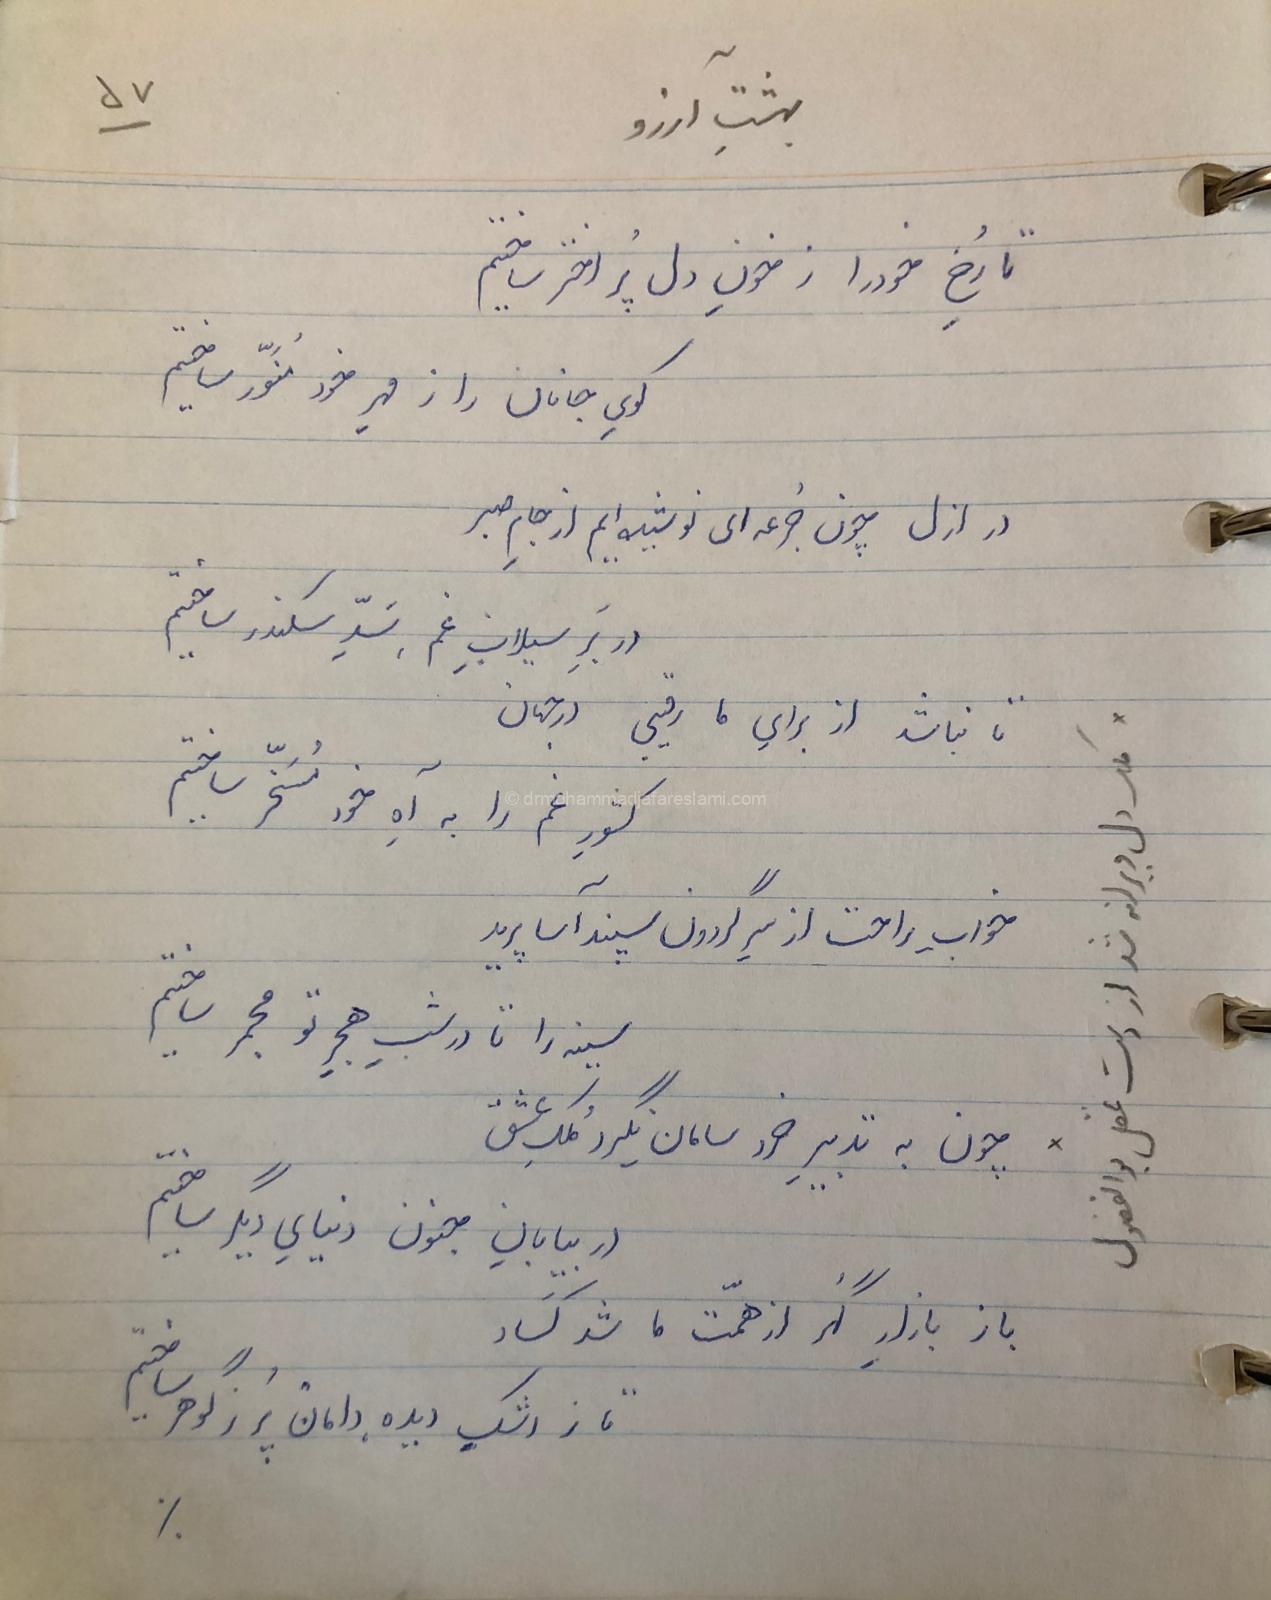 بهشتِ آرزو
۵۷
تا رُخِ خود را ز خونِ دل پُر اختر ساختیم
کویِ جانان را ز مهرِ خود مُنَوّر ساختیم
در ازل چون جُرعه ای نوشیده ایم از جامِ صبر
در بَرِ سیلابِ غم، سَدِّ سکندر ساختیم
تا نباشد از برایِ ما رقیبی در جهان
کشورِ غم را به آهِ خود مُسَخّر ساختیم
خوابِ راحت از سرِ گردون سپند آسا پرید
سینه را تا در شبِ هجرِ تو مجمر ساختیم
× چون به تدبیرِ خرد سامان نگیرد مُلکِ عشق
در بیابانِ جنون دنیایِ دیگر ساختیم
باز بازارِ گُهَر از همّت ما شد کَساد
تا ز اشکِ دیده، دامان پُر ز گوهر ساختیم
٪
× مُلک دل ویرانه شد از دست عقل بوالفضول
© drmohammadjafareslami.com